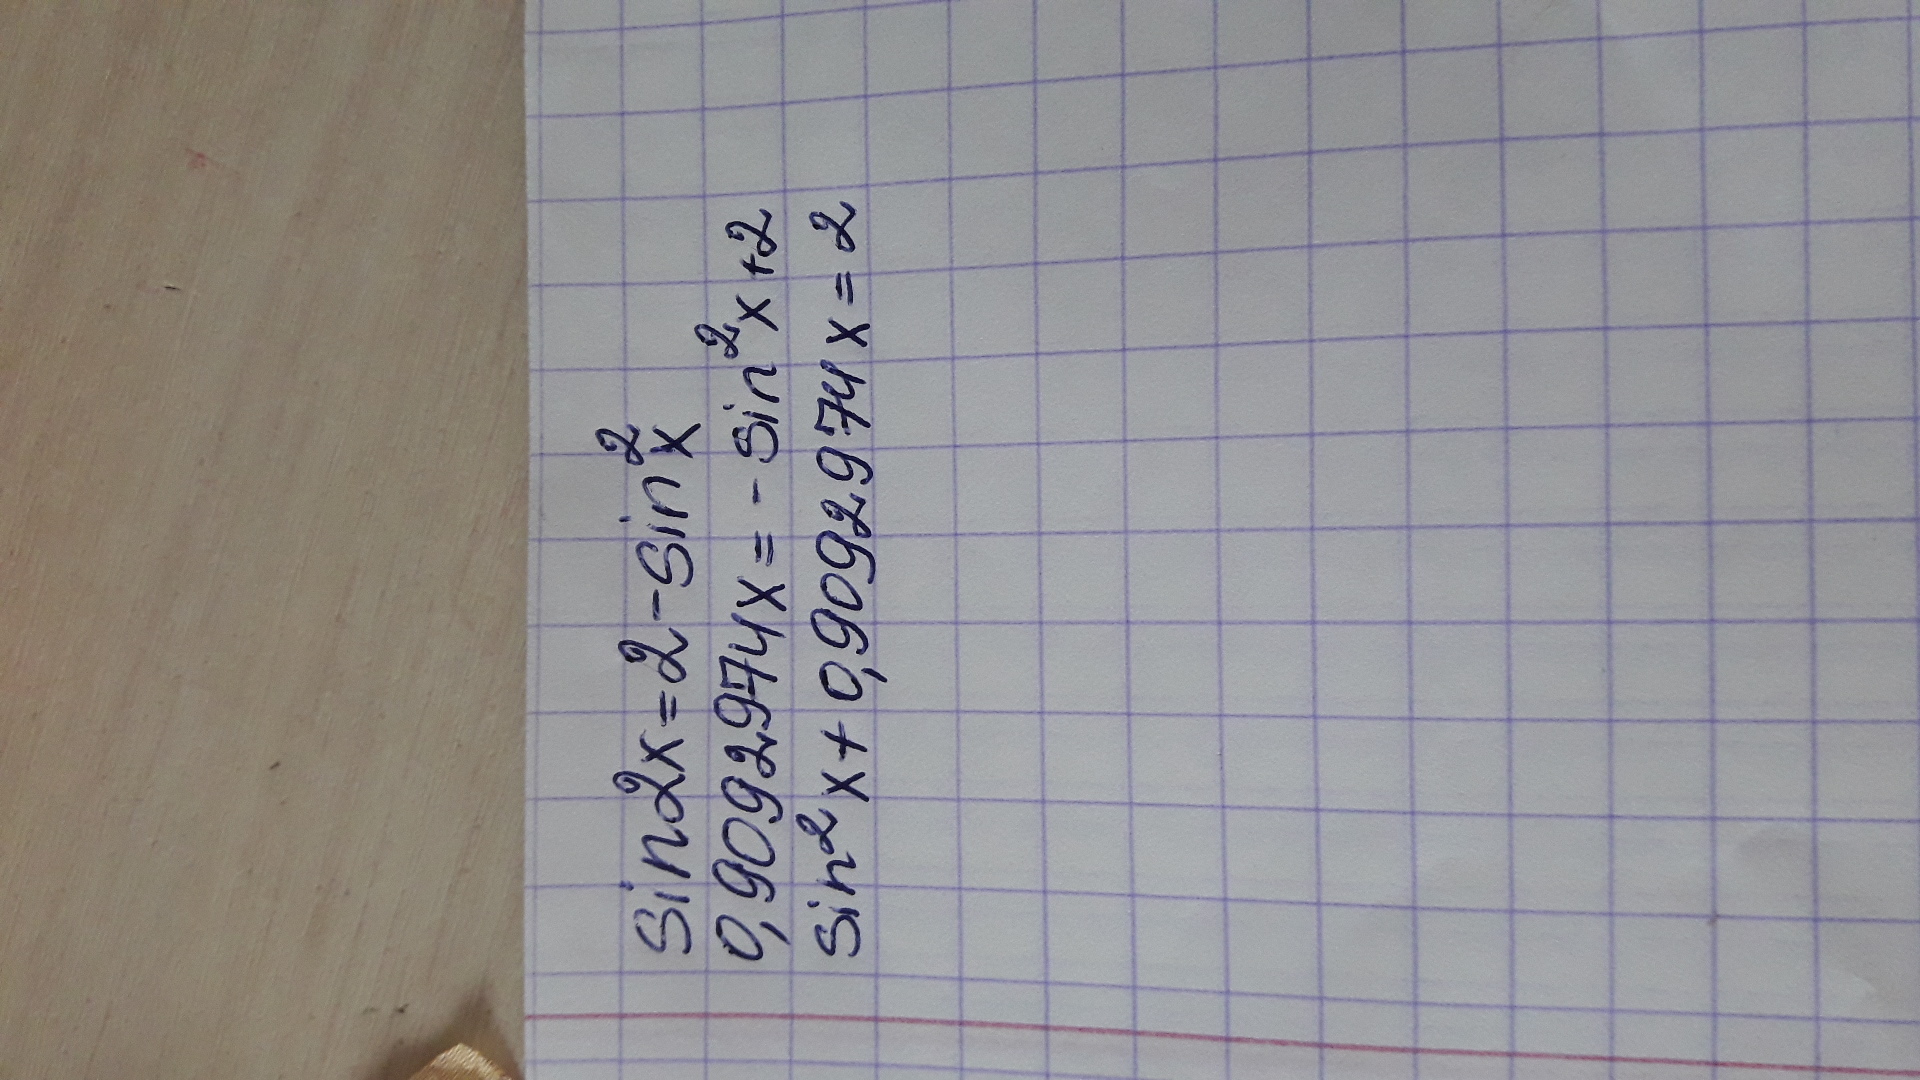 sin2x=2-sin²x
0,9092974x=-sin²x+2
sin²x+0,9092974x=2